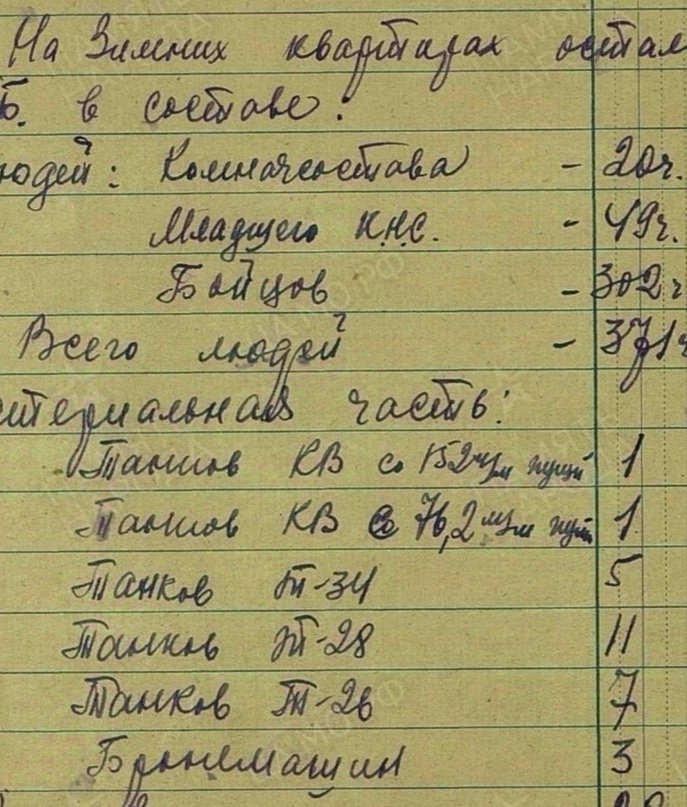 На Зимних квартирах остал
Б. в составе:
юдей: Комначсостава - 20ч.
Младшего К.Н.С. - 49ч.
Бойцов - 302ч
Всего людей - 371ч
атериальная часть:
Танков КВ со 152м/м пушкой 1
Танков КВ с 76,2м/м пушк 1
Танков Т-34 5
Танков Т-28 11
Танков Т-26 7
Бронемашин 3